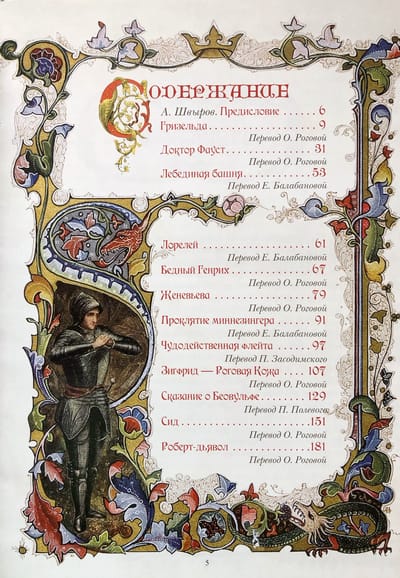 Содержание
А. Швыров. Предисловие ...... 6
Гризельда ................ 9
Перевод О. Роговой
Доктор Фауст ............. 31
Перевод О. Роговой
Лебединая башня .......... 53
Перевод Е. Балабановой
Лорелей .................. 61
Перевод Е. Балабановой
Бедный Генрих ............ 67
Перевод О. Роговой
Женевьева ................ 79
Перевод О. Роговой
Проклятие миннезингера ...... 91
Перевод Е. Балабановой
Чудодейственная флейта ..... 97
Перевод П. Засодимского
Зигфрид — Роговая Кожа .... 107
Перевод О. Роговой
Сказание о Беовульфе ....... 129
Перевод П. Полевого
Сид ...................... 151
Перевод О. Роговой
Роберт-дьявол ............ 181
Перевод О. Роговой
5